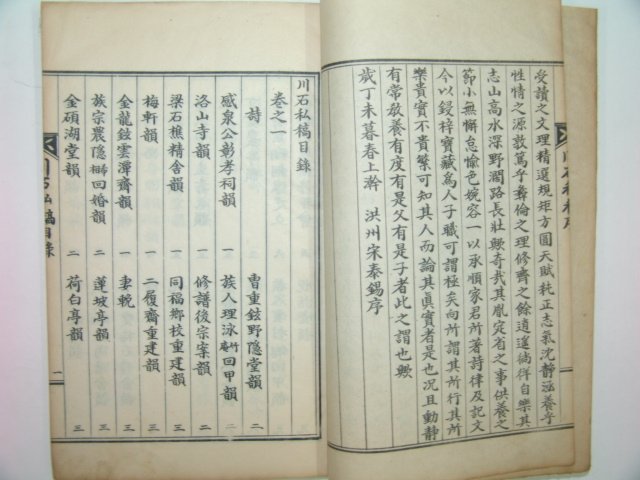 受讀之文理精選規矩方圓天賦純正志氣沈靜涵養乎
性情之源敦篤乎彛倫之理修齊之餘逍遥徜徉自樂其
志山高水深野濶路長壯歟奇哉其胤定省之事供養之
節小無懈怠愉色婉容一以承順家君所著詩律及記文
今以鋟梓寶藏爲人子職可謂極矣向所謂其所行其所
樂貴實不貴繁可知其人而論其眞實者是也况且動靜
有常敎養有度有是父有是子者此之謂也歟
歲丁未暮春上澣 洪州宋泰錫序
川石私稿目錄
卷之一
詩
曺重鉉野隐堂韻 二
感泉公彰孝祠韻 一
族人理泳回甲韻 二
洛山寺韻 一
修譜後宗案韻 二
梁石樵精舍韻 一
同福鄉校重建韻 三
梅軒韻 一
二履齋重建韻 三
金龍鉉雲潭齋韻 一
妻輓 三
族宗農隐回婚韻 二
蓮坡亭韻 三
金碩湖堂韻 二
荷白亭韻 三
川石私稿目錄 一